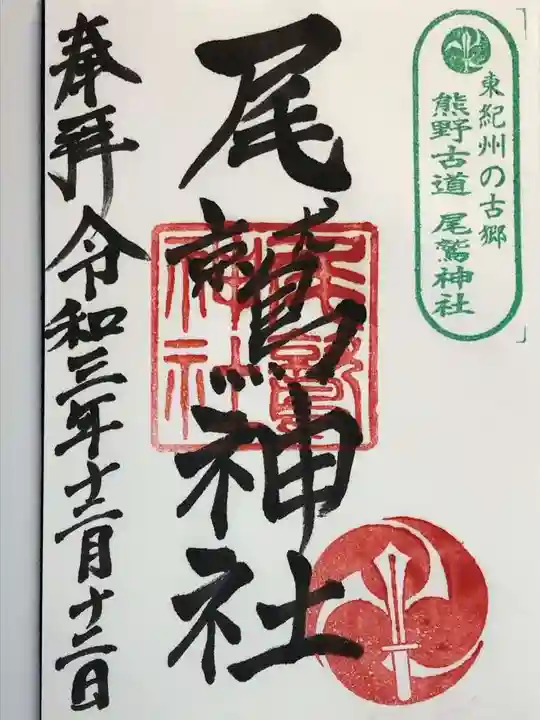 東紀州の古郷
熊野古道 尾鷲神社
尾鷲神社
尾鷲
神社
奉拝 令和三年十二月十二日